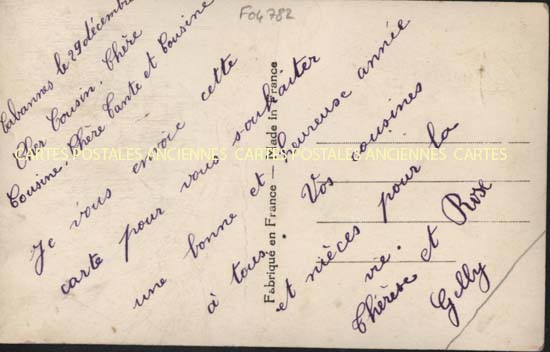 F04782
Cabannes le 29 décembre
Cher Cousin. Chère
Cousine. Chère Tante et Cousine
Je vous envoie cette
carte pour vous souhaiter
une bonne et heureuse année
à tous. Vos cousines
et nièces pour la
vie.
Thérèse et Rose
Gilly
Fabriqué en France — Made in France
CARTES POSTALES ANCIENNES CARTES POSTALES ANCIENNES CARTES